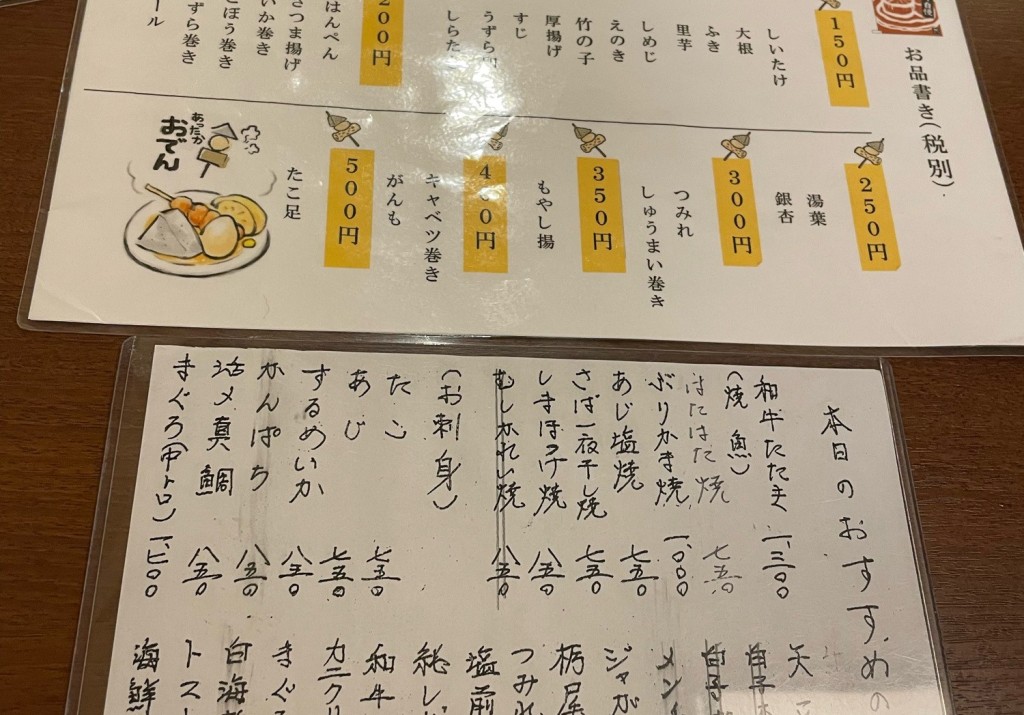 お品書き(税別)
150円
しいたけ
大根
ふき
里芋
しめじ
えのき
竹の子
厚揚げ
すじ
しらた
200円
はんぺん
さつま揚げ
いか巻き
ごぼう巻き
うずら巻き
ール
250円
湯葉
銀杏
300円
つみれ
しゅうまい巻き
350円
もやし揚
400円
キャベツ巻き
がんも
500円
たこ足
あったか
おでん
本日のおすすめの
和牛たたき 一、三〇〇
(焼魚)
はたはた焼 七五〇
ぶりかま焼 一、〇〇〇
あじ塩焼 七五〇
さば一夜干し焼 七五〇
しまほっけ焼 八五〇
むしかれい焼 八五〇
(お刺身)
たこ 七五〇
あじ 七五〇
するめいか 八五〇
かんぱち 八五〇
活〆真鯛 八五〇
まぐろ(中トロ) 一、七〇〇
天
白子
白子
メン
ジャが
栃尾
つみれ
塩
和牛
カニク
まぐ
白海
トス
海鮮